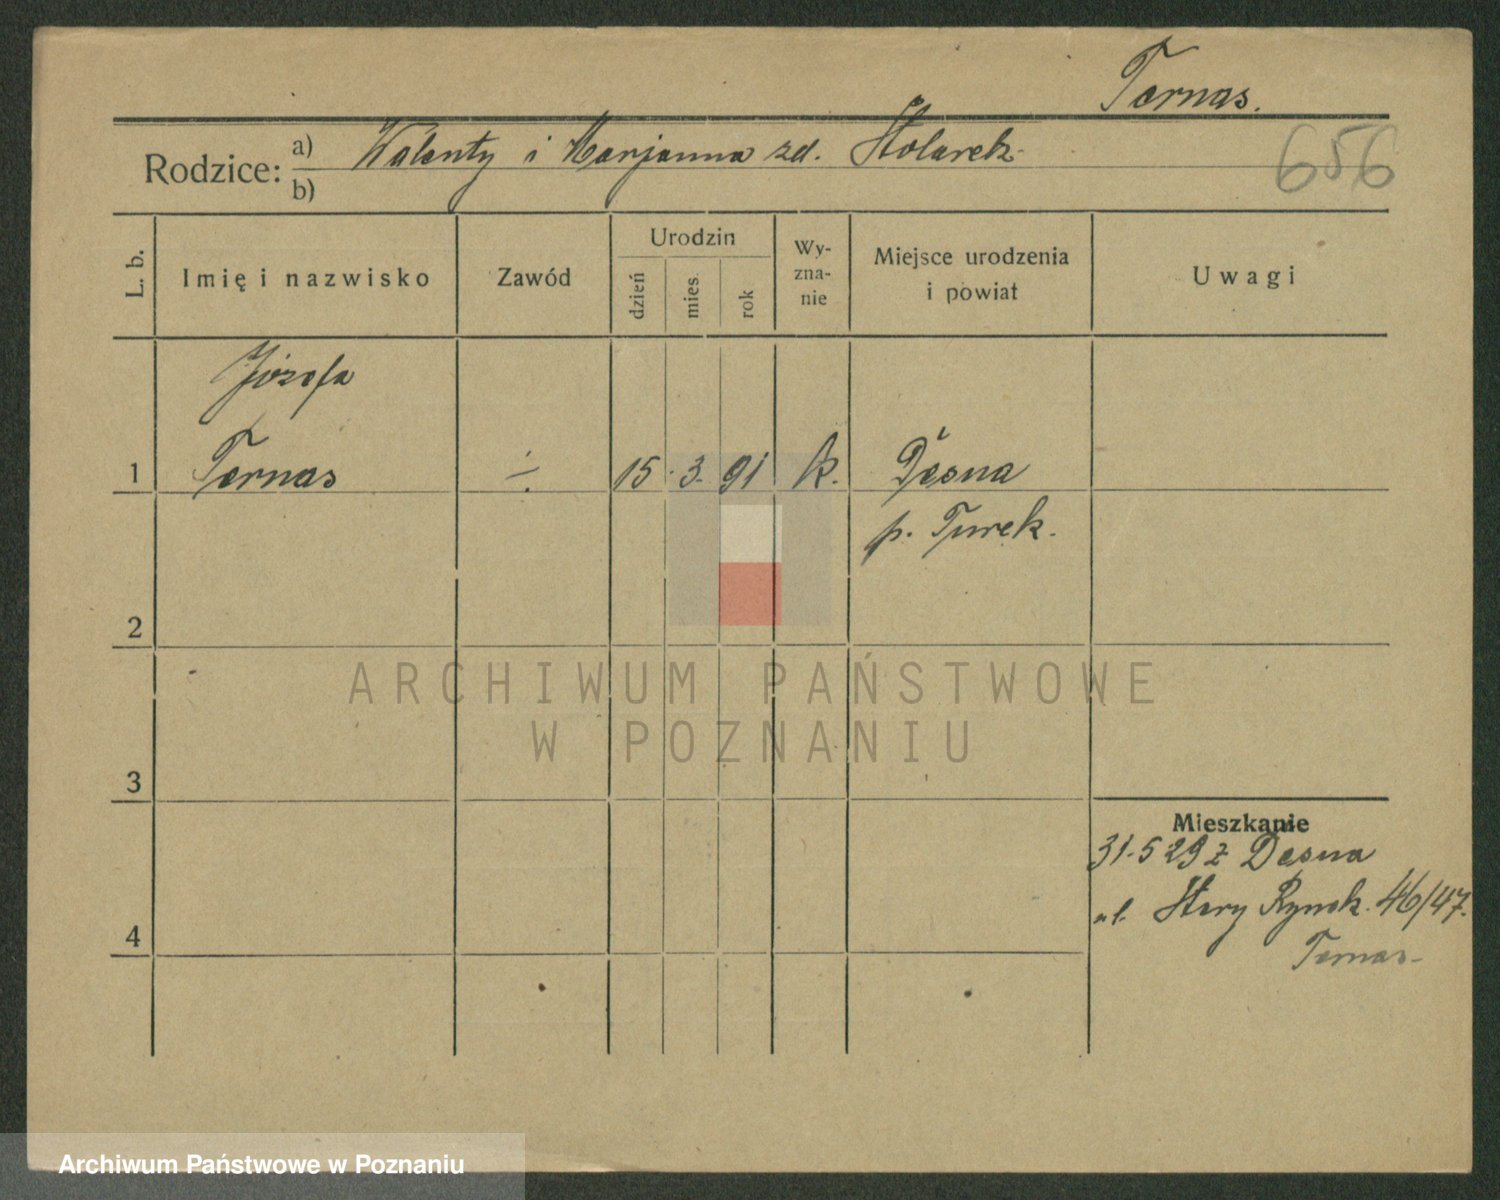 Ternas.
Rodzice: a) Walenty i Marjanna zd. Stolarek
b)
656
L. b.
Imię i nazwisko
Zawód
Urodzin
dzień
mies.
rok
Wy-
zna-
nie
Miejsce urodzenia
i powiat
Uwagi
Józefa
1 Ternas ÷ 15. 3. 91 k. Desna
p. Turek.
2
ARCHIWUM PAŃSTWOWE
W POZNANIU
3
Mieszkanie
31.5 29 z Desna
ul. Stary Rynek. 46/47.
4
Ternas
Archiwum Państwowe w Poznaniu